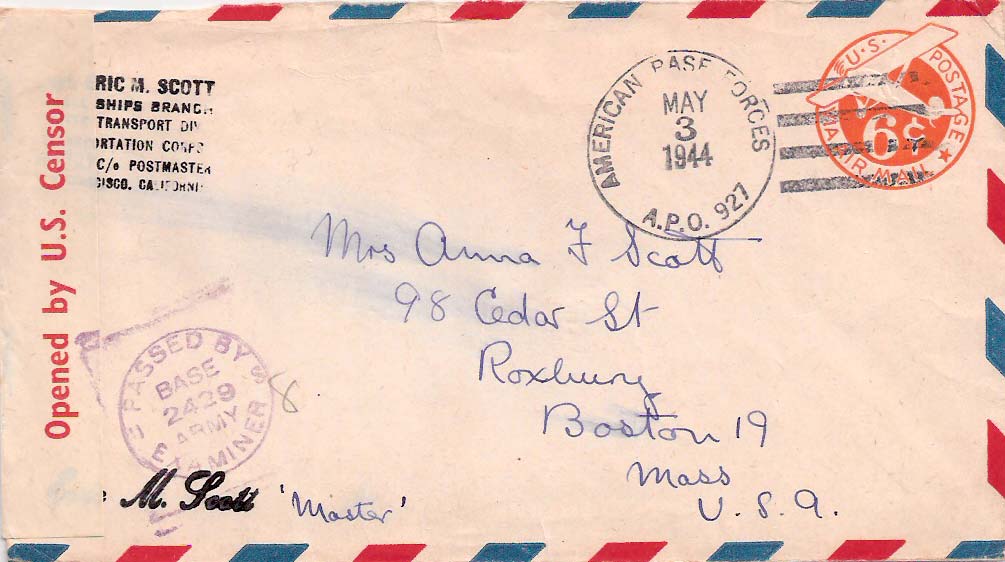 RIC M. SCOTT
SHIPS BRANCH
TRANSPORT DIV
RTATION CORPS
C/o POSTMASTER
CISCO, CALIFORNI
Opened by U.S. Censor
AMERICAN BASE FORCES
MAY
3
1944
A.P.O. 927
U.S. POSTAGE
6¢
AIR MAIL
Mrs Anna F Scott
98 Cedar St
Roxbury
Boston 19
Mass
U.S.A.
PASSED BY
BASE
2429
ARMY
EXAMINER
8
M. Scott 'Master'